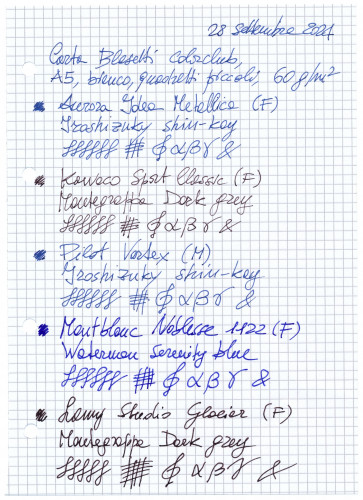 28 settembre 2021
Carta Blasetti colorclub,
A5, bianco, quadretti piccoli, 60 g/m²
Aurora Idea Metallica (F)
Iroshizuky shin-kay
§§§§§§ # ∮ α β γ &
Kaweco Sport Classic (F)
Montegrappa Dark grey
§§§§§§ # ∮ α β γ &
Pilot Vortex (M)
Iroshizuky shin-kay
§§§§§§ # ∮ α β γ &
Montblanc Noblesse 1122 (F)
Waterman Serenity blue
§§§§§§ # ∮ α β γ &
Lamy Studio Glacier (F)
Montegrappa Dark grey
§§§§§§ # ∮ α β γ &